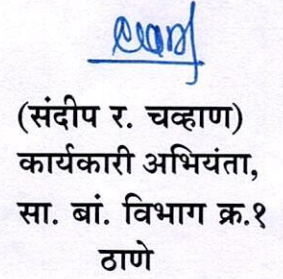 (संदीप र. चव्हाण)
कार्यकारी अभियंता,
सा. बां. विभाग क्र.१
ठाणे